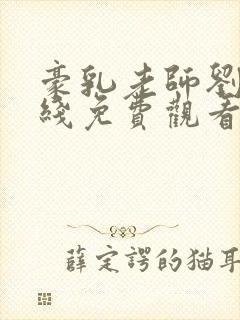 豪乳老師劉
綫免費觀看
薛定諤的猫耳